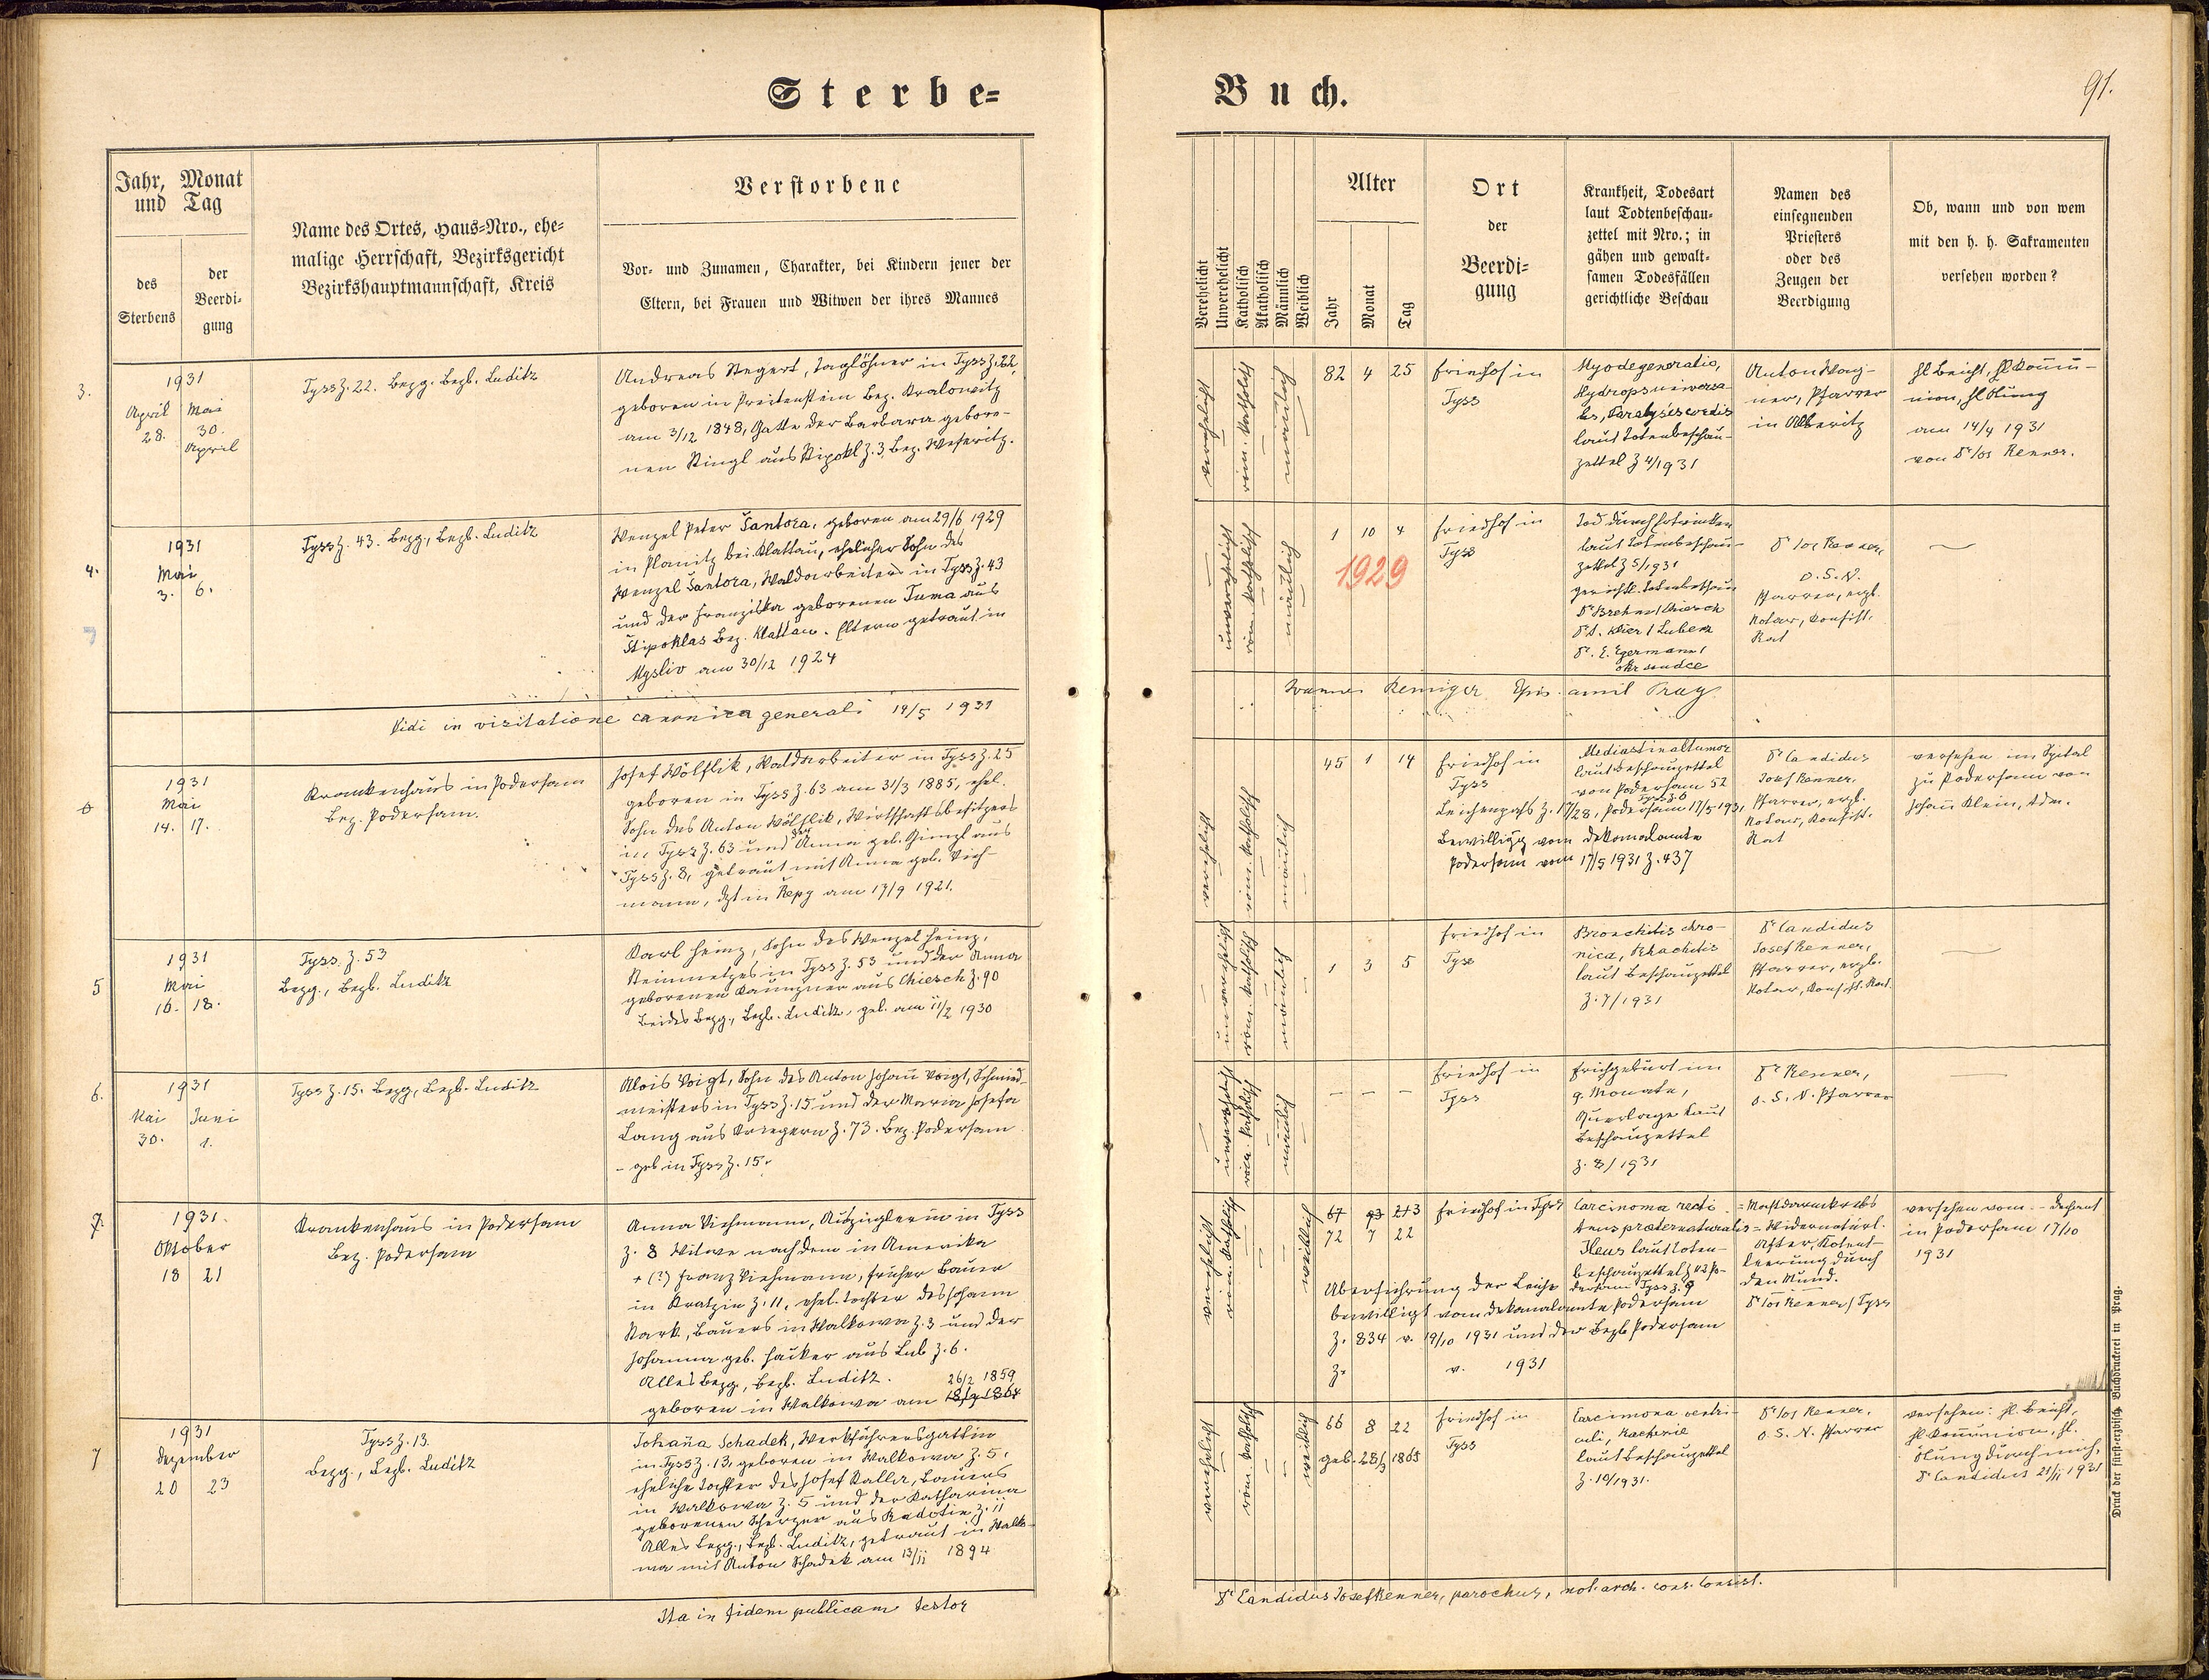 Sterbe-
Buch.
91.
Jahr, Monat
und Tag
des
Sterbens
der
Beerdi-
gung
Name des Ortes, Haus-Nro., ehe-
malige Herrschaft, Bezirksgericht
Bezirkshauptmannschaft, Kreis
Verstorbene
Vor- und Zunamen, Charakter, bei Kindern jener der
Eltern, bei Frauen und Witwen der ihres Mannes
Verehelicht
Unverehelicht
Katholisch
Akatholisch
Männlich
Weiblich
Alter
Jahr
Monat
Tag
Ort
der
Beerdi-
gung
Krankheit, Todesart
laut Todtenbeschau-
zettel mit Nro.; in
gähen und gewalt-
samen Todesfällen
gerichtliche Beschau
Namen des
einsegnenden
Priesters
oder des
Zeugen der
Beerdigung
Ob, wann und von wem
mit den h. h. Sakramenten
versehen worden?
3.
1931
April 28.
Mai
30.
April
Tyss Z. 22. Bezg. Bezb. Luditz
Andreas Stegert, Taglöhner in Tyss Z. 22,
geboren in Preitenstein Bez. Kralowitz
am 3/12 1848, Gatte der Barbara gebore-
nen Ringl aus Stipokl Z. 3, Bez. Weseritz.
verehelicht
röm. katholisch
männlich
82 4 25
Friedhof in
Tyss
Myodegeneratio,
Hydrops universa-
lis, Paralysis cordis
laut Totenbeschau-
zettel Z 4/1931
Anton Wag-
ner, Pfarrer
in Alberitz
Hl Beicht, Hl Kommu-
nion, Hl Ölung
am 14/4 1931
von Dr Jos Renner.
4.
1931
Mai
3. 6.
Tyss Z. 43. Bezg., Bezb. Luditz
Wenzel Peter Šantora, geboren am 29/6 1929
in Planitz bei Klattau, ehelicher Sohn des
Wenzel Šantora, Waldarbeiters in Tyss Z. 43
und der Franziska geborenen Tuma aus
Štipoklas Bez. Klattau. Eltern getraut in
Mysliv am 30/12 1924
unverehelicht
röm. katholisch
männlich
1 10 4
1929
Friedhof in
Tyss
Tod durch Ertrinken
laut Totenbeschau-
zettel Z 5/1931
gerichtl. Totenbeschau
Dr Brehm / Chiesch
Dr E. Egermann /
okr soudce
Dr Jos Renner,
Pfarrer, erzb.
Notar, Konsist.
Rat
Vidi in visitatione canonica generali 14/5 1931
Remiger Prag
1931
Mai
14. 17.
Krankenhaus in Podersam
Bez. Podersam.
Josef Wölflik, Waldarbeiter in Tyss Z. 25
geboren in Tyss Z 63 am 31/3 1885, ehel.
Sohn des Anton Wölflik, Wirtschaftsbesitzers
in Tyss Z. 63 und der Anna geb. Gimpl aus
Tyss Z. 8, getraut mit Anna geb. Vieh-
mann, dzt in Repy am 17/9 1921.
verehelicht
röm. katholisch
männlich
45 1 14
Friedhof in
Tyss
Mediastinaltumor
laut Beschauzettel
von Podersam 52
Tyss Z. 6
Leichenpass Z. 17/28, Podersam 17/5 1931
Bewilligg vom Dekanalamte
Podersam vom 17/5 1931 Z. 437
Dr Candidus
Josef Renner,
Pfarrer, erzb.
Notar, Konsist.
Rat
versehen im Spital
zu Podersam von
Johann Klein, Adm.
5
1931
Mai
16. 18.
Tyss. Z. 53
Bezg., Bezb. Luditz
Karl Heinz, Sohn des Wenzel Heinz,
Steinmetzes in Tyss Z. 53 und der Anna
geborenen Kaunzner aus Chiesch Z. 90
beides Bezg., Bezb. Luditz, geb. am 11/2 1930
unverehelicht
röm. katholisch
männlich
1 3 5
Friedhof in
Tyss
Bronchitis chro-
nica, Rhachitis
laut Beschauzettel
Z. 7/1931
Dr Candidus
Josef Renner,
Pfarrer, erzb.
Notar, Konsist. Rat.
6.
1931
Mai Juni
30. 1.
Tyss Z. 15. Bezg, Bezb. Luditz
Alois Voigt, Sohn des Anton Johann Voigt, Schmied-
meisters in Tyss Z. 15 und der Maria Josefa
Lang aus Kriegern Z. 73. Bez. Podersam
- geb in Tyss Z. 15.
unverehelicht
röm. katholisch
männlich
- - -
Friedhof in
Tyss
Frühgeburt im
9. Monate,
Querlage laut
Beschauzettel
Z. 8/1931
Dr Renner,
Pfarrer
7.
1931.
Oktober
18 21
Krankenhaus in Podersam
Bez. Podersam
Anna Viehmann, Auszüglerin in Tyss
Z. 8 Witwe nach dem in Amerika
+ (?) Franz Viehmann, früher Bauer
in Kratzin Z. 11, ehel. Tochter des Johann
Stark, Bauers in Walkowa Z. 3 und der
Johanna geb. Hacker aus Lub Z. 6.
Alles Bezg, Bezb. Luditz.
26/2 1859
geboren in Walkowa am
verehelicht
röm. katholisch
weiblich
67
72 7 22
Friedhof in Tyss
Carcinoma recti = Mastdarmkrebs
Anus praeternaturalis = Widernatürl.
After, Kotent-
leerung durch
den Mund.
Ileus laut Toten-
beschauzettel
Tyss Z. 9
Überführung der Leiche
bewilligt vom Dekanalamte Podersam
Z. 834 v. 19/10 1931 und der Bezb Podersam
Z. v. 1931
Dr Jos Renner / Tyss
versehen vom - Dechant
in Podersam 17/10
1931
7
1931
Dezember
20 23
Tyss Z. 13.
Bezg., Bezb. Luditz
Johanna Schadek, Werkführersgattin
in Tyss Z. 13, geboren in Walkowa Z. 5.
eheliche Tochter des Josef Kaller, Bauers
in Walkowa Z. 5 und der Katharina
geborenen Scherzer aus Radotin Z. 11
Alles Bezg., Bezb. Luditz, getraut in Walko-
wa mit Anton Schadek am 13/11 1894
verehelicht
röm. katholisch
weiblich
66 8 22
geb. 28/3 1865
Friedhof in
Tyss
Carcinoma ventri-
culi, Kachexie
laut Beschauzettel
Z. 10/1931.
Dr Jos Renner,
Pfarrer
versehen: Hl. Beicht,
Hl. Kommunion, Hl.
Ölung durch mich,
Dr Candidus 21/11 1931
Ita in fidem publicam testor
Dr Candidus Josef Renner, parochus, not. arch. cons. Consist.
Druck der fürst-erzbisch. Buchdruckerei in Prag.